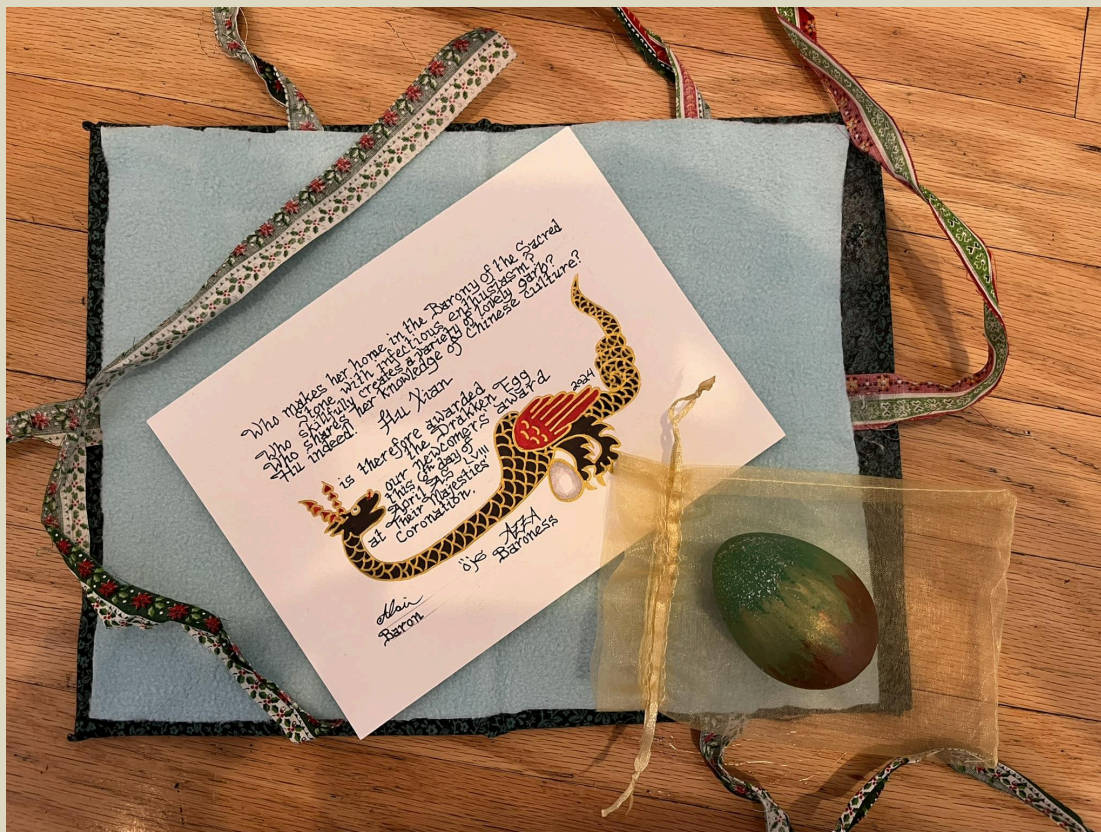 Who makes her home in the Barony of the Sacred
Stone with infectious enthusiasm?
Who skillfully creates a variety of lovely garb?
Who shares her knowledge of Chinese culture?
Hu indeed!
Hu Xian
is therefore awarded
the Drakken Egg
our newcomers award
this 6th day of
April A.S. LVIII
at Their Majesties
Coronation.
2024
AZZA
Baroness
Alain
Baron